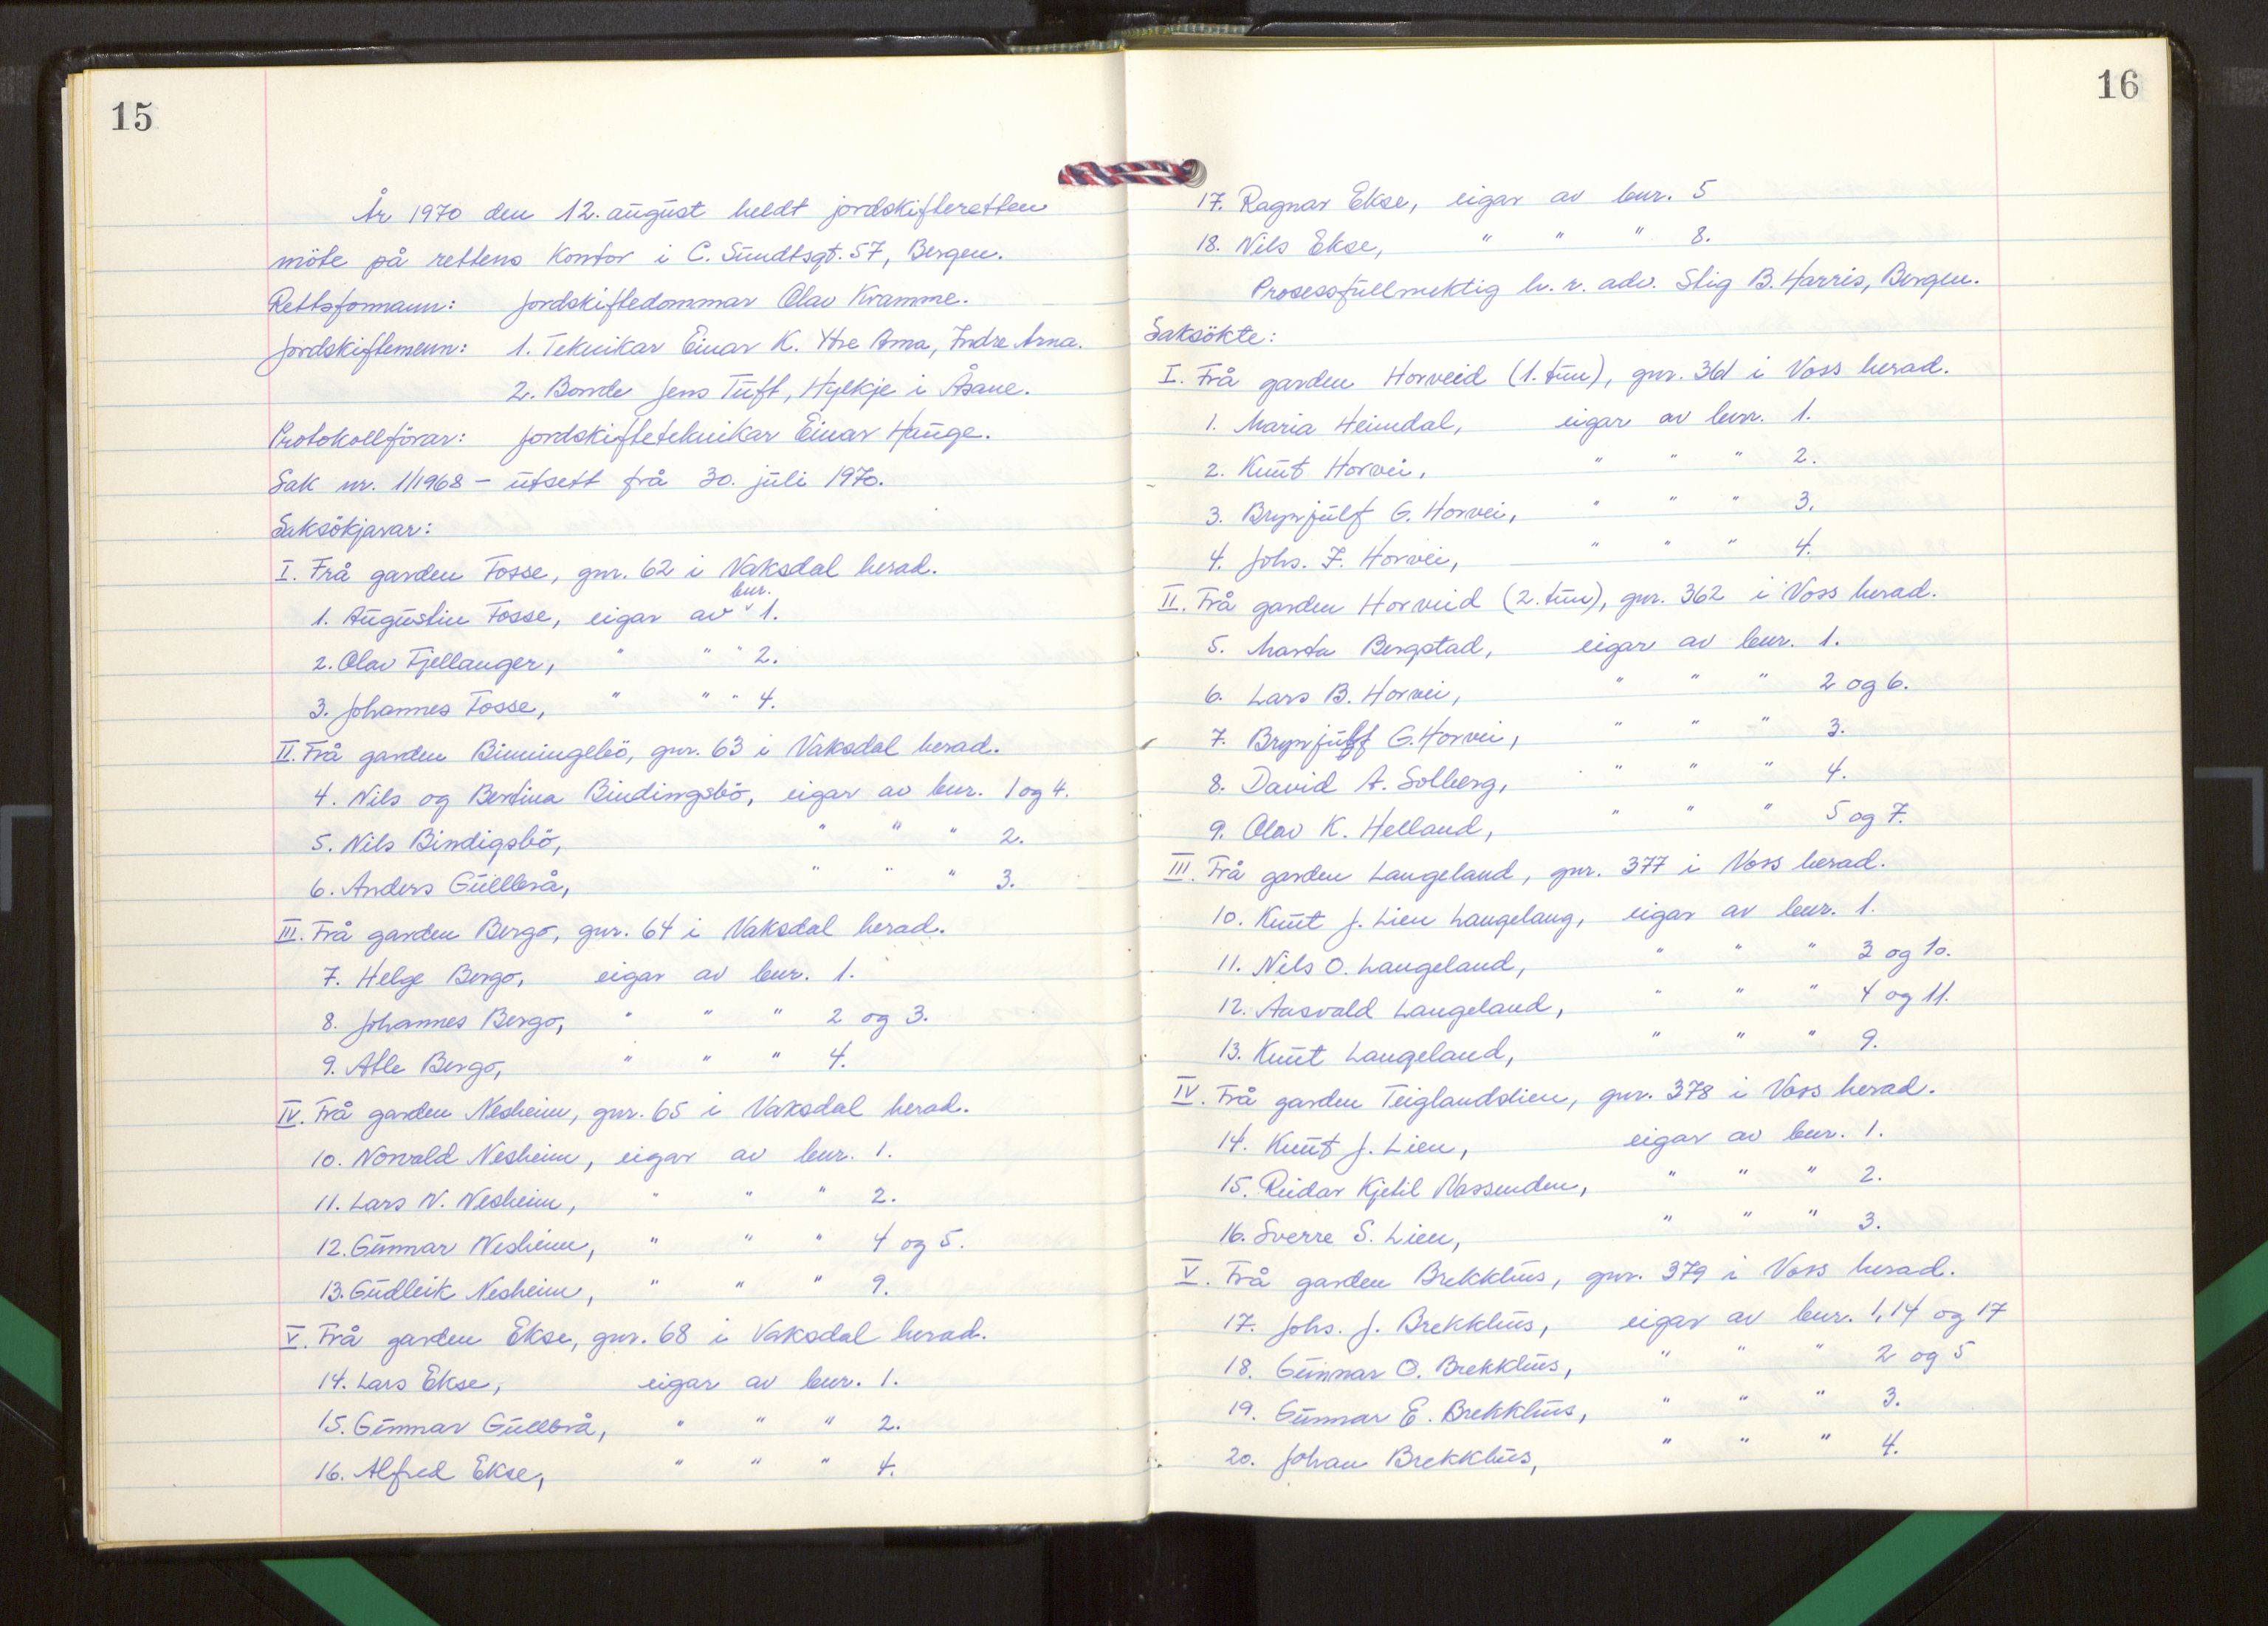 15
År 1970 den 12. august heldt jordskifteretten
möte på rettens kontor i C. Sundtsgt. 57, Bergen.
Rettsformann: Jordskiftedommar Olav Kramme.
Jordskiftemenn: 1. Teknikar Einar K. Ytre Arna, Indre Arna.
2. Bonde Jens Tuft, Hylkje i Åsane.
Protokollförar: Jordskifteteknikar Einar Hauge.
Sak nr. 1/1968 – utsett frå 30. juli 1970.
Saksökjarar:
I. Frå garden Fosse, gnr. 62 i Vaksdal herad.
1. Augustin Fosse, eigar av bnr. 1.
2. Olav Fjellanger, " " " 2.
3. Johannes Fosse, " " " 4.
II. Frå garden Binningebö, gnr. 63 i Vaksdal herad.
4. Nils og Bertina Bindingsbö, eigar av bnr. 1 og 4.
5. Nils Bindigsbö, " " " 2.
6. Anders Gullbrå, " " " 3.
III. Frå garden Bergo, gnr. 64 i Vaksdal herad.
7. Helge Bergo, eigar av bnr. 1.
8. Johannes Bergo, " " " 2 og 3.
9. Atle Bergo, " " " 4.
IV. Frå garden Nesheim, gnr. 65 i Vaksdal herad.
10. Norvald Nesheim, eigar av bnr. 1.
11. Lars N. Nesheim, " " " 2.
12. Gunnar Nesheim, " " " 4 og 5.
13. Gudleik Nesheim, " " " 9.
V. Frå garden Ekse, gnr. 68 i Vaksdal herad.
14. Lars Ekse, eigar av bnr. 1.
15. Gunnar Gullbrå, " " " 2.
16. Alfred Ekse, " " " 4.
16
17. Ragnar Ekse, eigar av bnr. 5
18. Nils Ekse, " " " 8.
Prosessfullmektig h. r. adv. Stig B. Harris, Bergen.
Saksökte:
I. Frå garden Horveid (1. tun), gnr. 361 i Voss herad.
1. Maria Heimdal, eigar av bnr. 1.
2. Knut Horvei, " " " 2.
3. Brynjulf G. Horvei, " " " 3.
4. Johs. F. Horvei, " " " 4.
II. Frå garden Horveid (2. tun), gnr. 362 i Voss herad.
5. Marta Bergstad, eigar av bnr. 1.
6. Lars B. Horvei, " " " 2 og 6.
7. Brynjulf G. Horvei, " " " 3.
8. David A. Solberg, " " " 4.
9. Olav K. Helland, " " " 5 og 7.
III. Frå garden Langeland, gnr. 377 i Voss herad.
10. Knut J. Lien Langelang, eigar av bnr. 1.
11. Nils O. Langeland, " " " 3 og 10.
12. Aasvald Langeland, " " " 4 og 11.
13. Knut Langeland, " " " 9.
IV. Frå garden Teiglandslien, gnr. 378 i Voss herad.
14. Knut J. Lien, eigar av bnr. 1.
15. Reidar Kjetil Vassenden, " " " 2.
16. Sverre S. Lien, " " " 3.
V. Frå garden Brekkhus, gnr. 379 i Voss herad.
17. Johs. J. Brekkhus, eigar av bnr. 1, 14 og 17
18. Gunnar O. Brekkhus, " " " 2 og 5
19. Gunnar E. Brekkhus, " " " 3.
20. Johan Brekkhus, " " " 4.